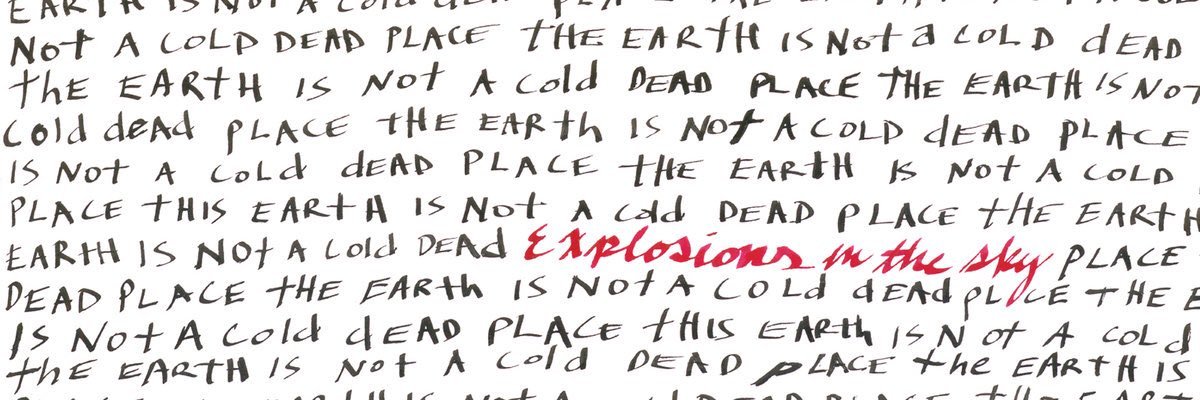 EARTH IS NOT A cold dead PLACE THE EARTH
NOt A COLD DEAD PLACE tHE EARtH IS Not a COLD dEAD
thE EARtH IS Not A Cold DEAD PLACE THE EARTH IS NOT
Cold deAd PLACE tHE EARth IS NOt A COLD dEAD PLACE
IS NOt A CoLd dEAD PLACE tHE EARtH IS NOt A COLD
PLACE tHIS EARtH IS NOt A Cold DEAD PLACE tHE EARtH
EARtH IS NOt A Cold DEAd Explosions in the sky PLACE
DEAD PLACE tHE EARth IS NOt A COLd dEAd PLACE THE E
IS NOt A Cold dEAD PLACE tHIS EARth IS Not A COLd
thE EARtH IS NOt A Cold DEAD PLACE the EARtH IS